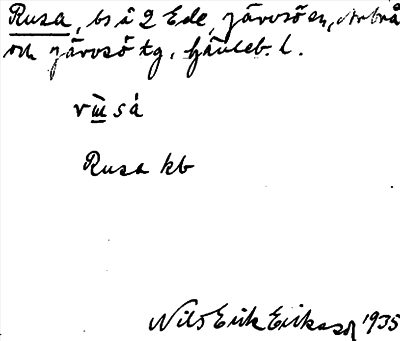 Rusa, bs å 2 Ede, Järvsö sn, Arbrå
och Järvsö tg, Gävleb. l.
rùsá
Rusa kb
Nils Erik Eriksson 1935